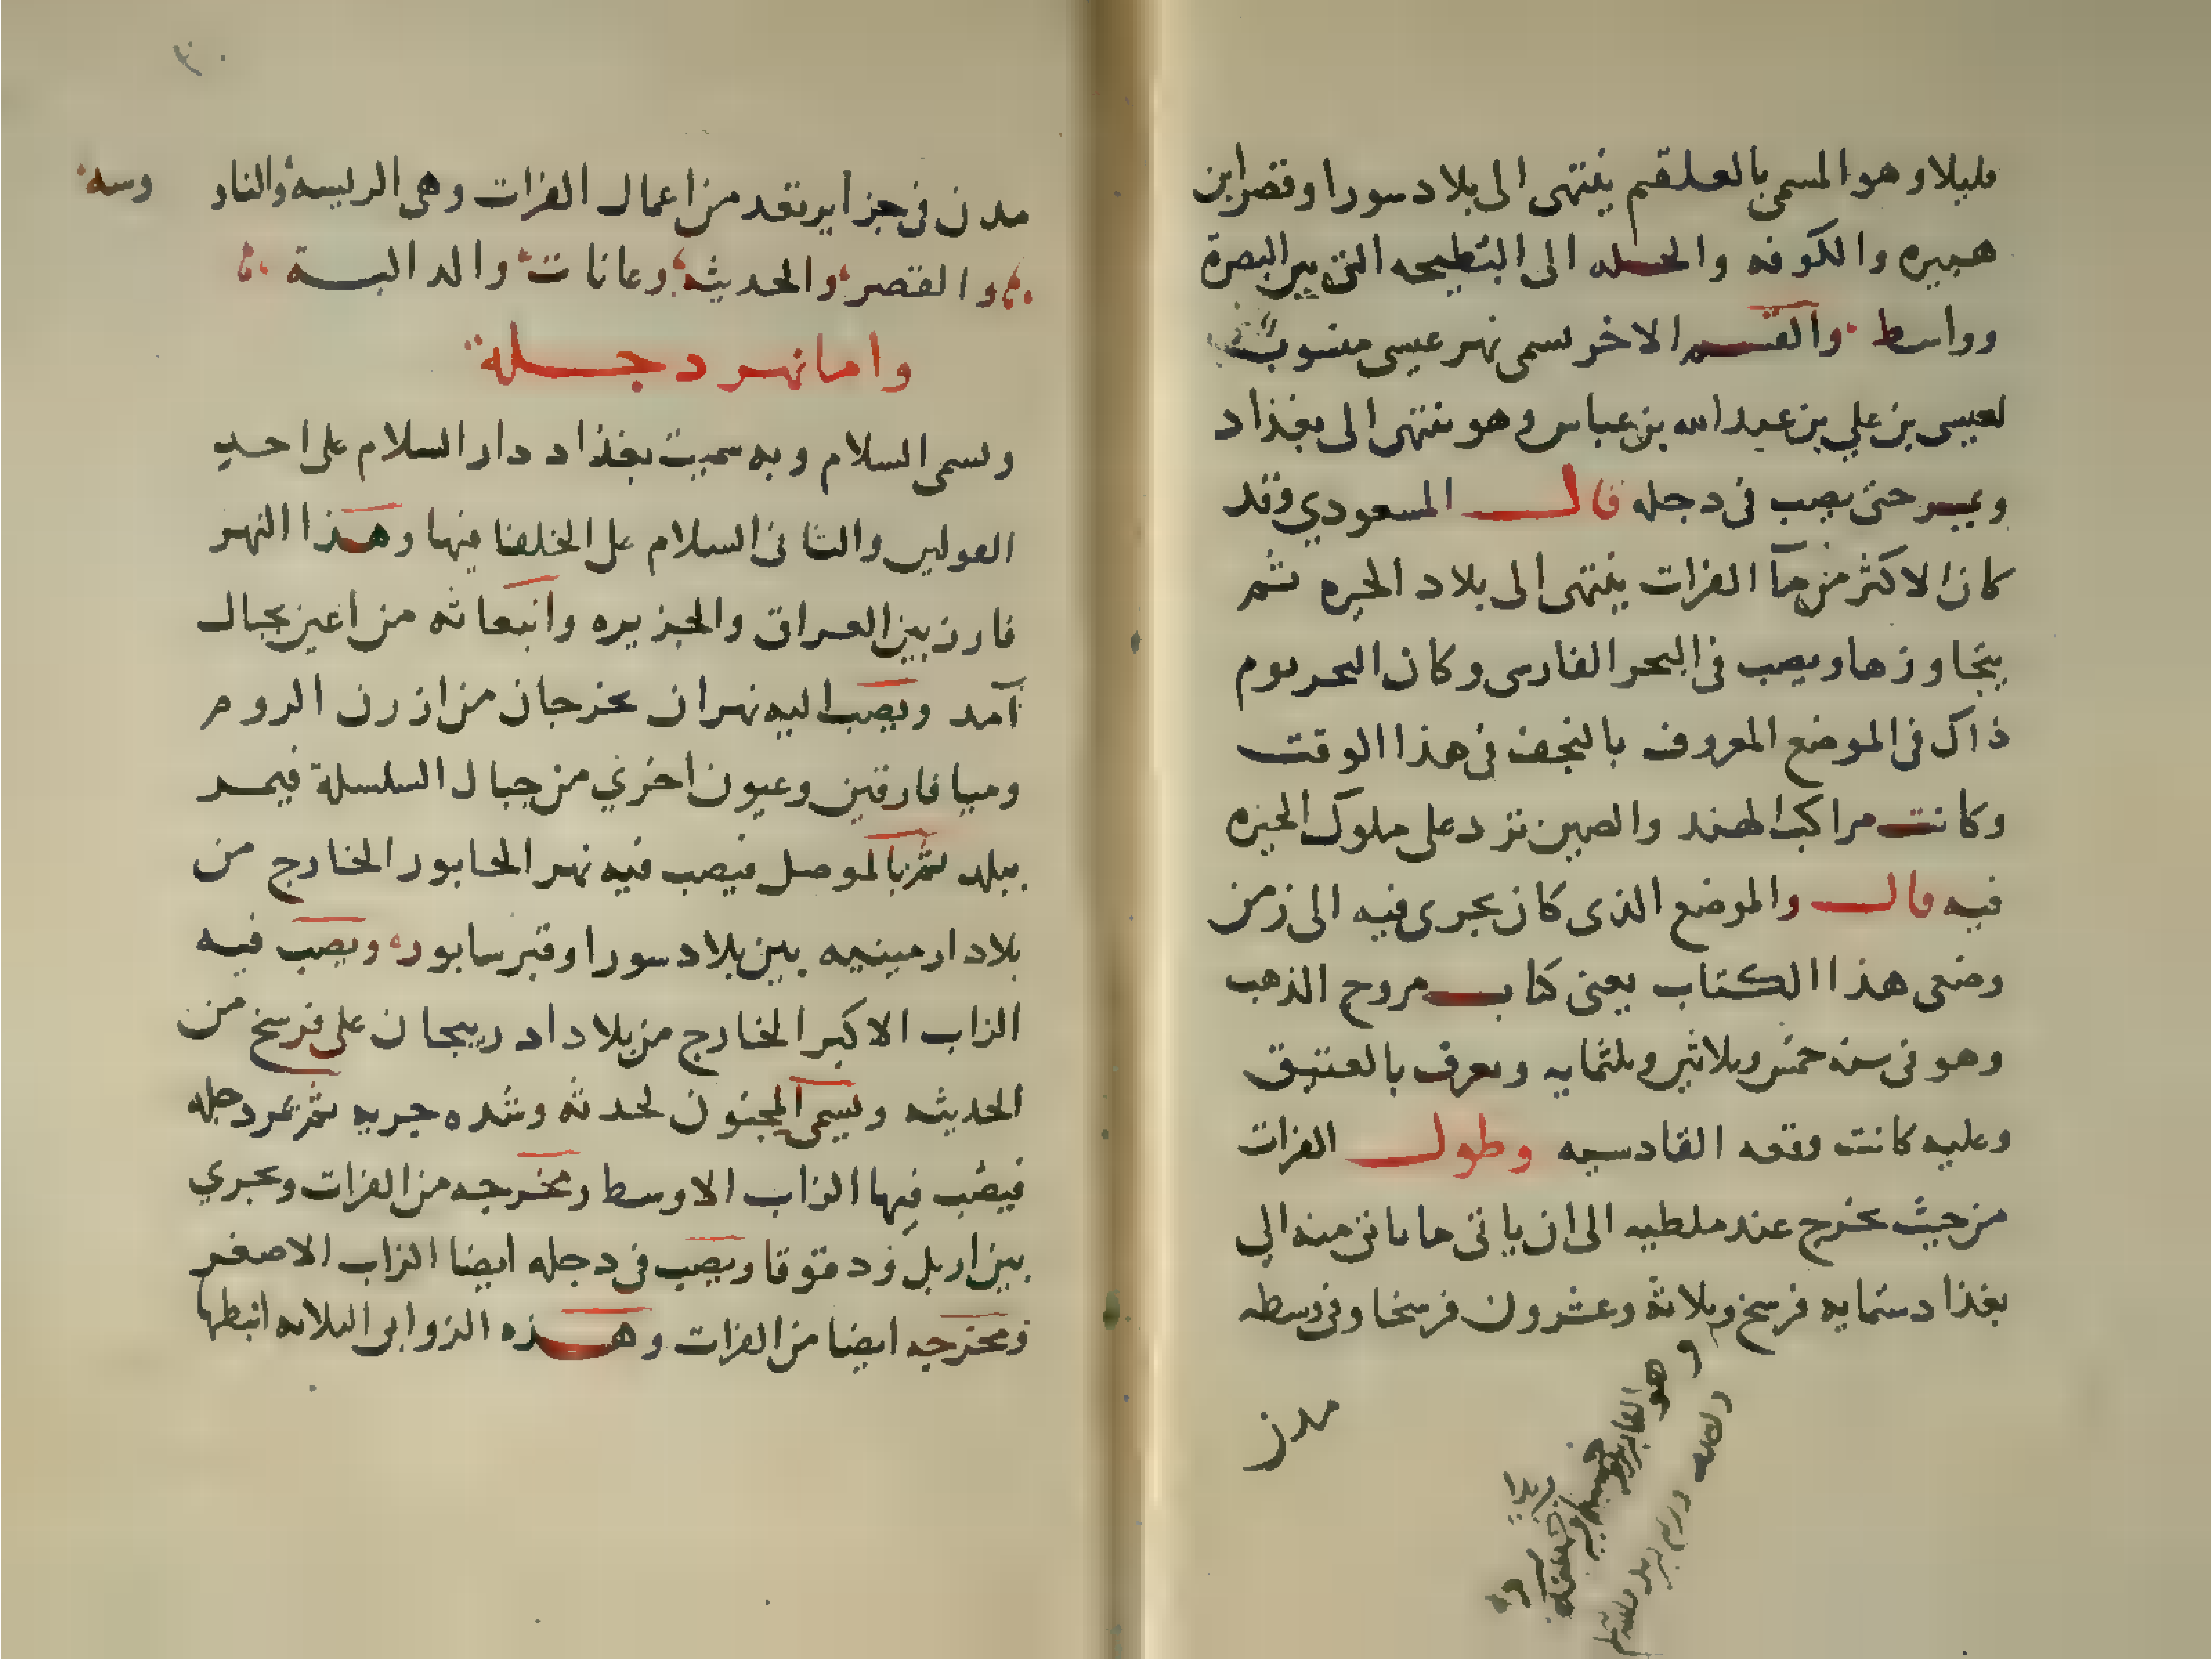 مليلا وهو المسمى بالعلقم ينتهى الى بلاد سورا وقصر ابن
هبيره والكوفه والحله الى البطيحه التى بين البصرة
وواسط والقسم الاخر يسمى نهر عيسى منسوب
لعيسى بن علي بن عبد الله بن عباس وهو ينتهى الى بغذاد
ويمر حتى يصب فى دجله قال المسعودي وقد
كان الاكثر من مآ الفرات ينتهى الى بلاد الحيره ثم
يتجاوزها ويصب فى البحر الفارسى وكان البحر يوم
ذاك فى الموضع المعروف بالنجف فى هذا الوقت
وكانت مراكب الهند والصين ترد على ملوك الحيره
فيه قال والموضع الذى كان يجرى فيه الى زمن
وضعى هذا الكتاب يعنى كتاب مروج الذهب
وهو فى سنه خمس وثلاثين وثلثمايه ويعرف بالعتيق
وعليه كانت وقعه القادسيه وطول الفرات
من حيث يخرج عند ملطيه الى ان ياتى ما ياتى منه الي
بغذاد ستمايه فرسخ وثلاثة وعشرون فرسخا وفى وسطه
مدن
مدن فى جزاير تعد من اعمال الفرات وهى الريسه والناووسه
والقصر والحديثه وعانات والدالبة
واما نهر دجلة
ويسمى السلام وبه سميت بغذاد دار السلام على احد
القولين والثانى السلام على الخلفا فيها وهذا النهر
فارز بين العراق والجزيره وانبعاثه من اعين بجبال
آمد ويصب اليه نهران يخرجان من ازرن الروم
وميا فارقين وعيون اخري من جبال السلسلة فيمر
ببلد ثم بالموصل فيصب فيه نهر الخابور الخارج من
بلاد ارمينيه بين بلاد سورا وقبر سابور ويصب فيه
الزاب الاكبر الخارج من بلاد ادربيجان على فرسخ من
الحديثه ويسمى المجنون لحدته وشده جريه ثم تمر دجله
فيصب فيها الزاب الاوسط ومخرجه من الفرات ويجري
بين اربل ودقوقا ويصب فى دجله ايضا الزاب الاصغر
ومخرجه ايضا من الفرات وهذه الزوابى الثلاثه انبطها